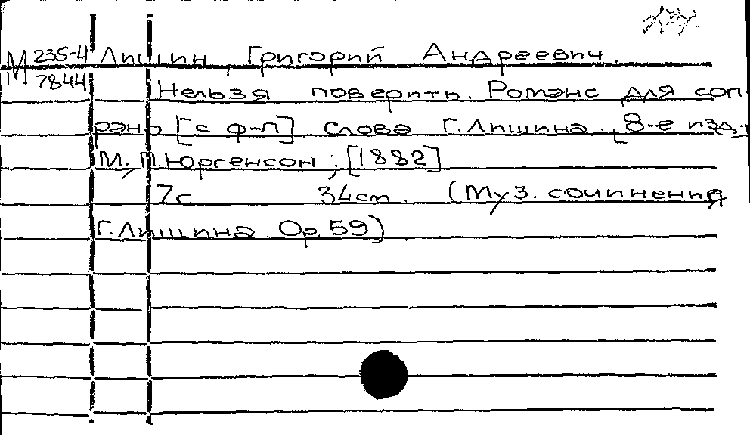 М 235-4 Лишин, Григорий Андреевич.
7844 Нельзя поверить. Романс для соп
рано [с ф-п] слова Г. Лишина. [8-е изд.
М., П. Юргенсон; [1882]
7с 34см. (Муз. сочинения
Г. Лишина Ор. 59)